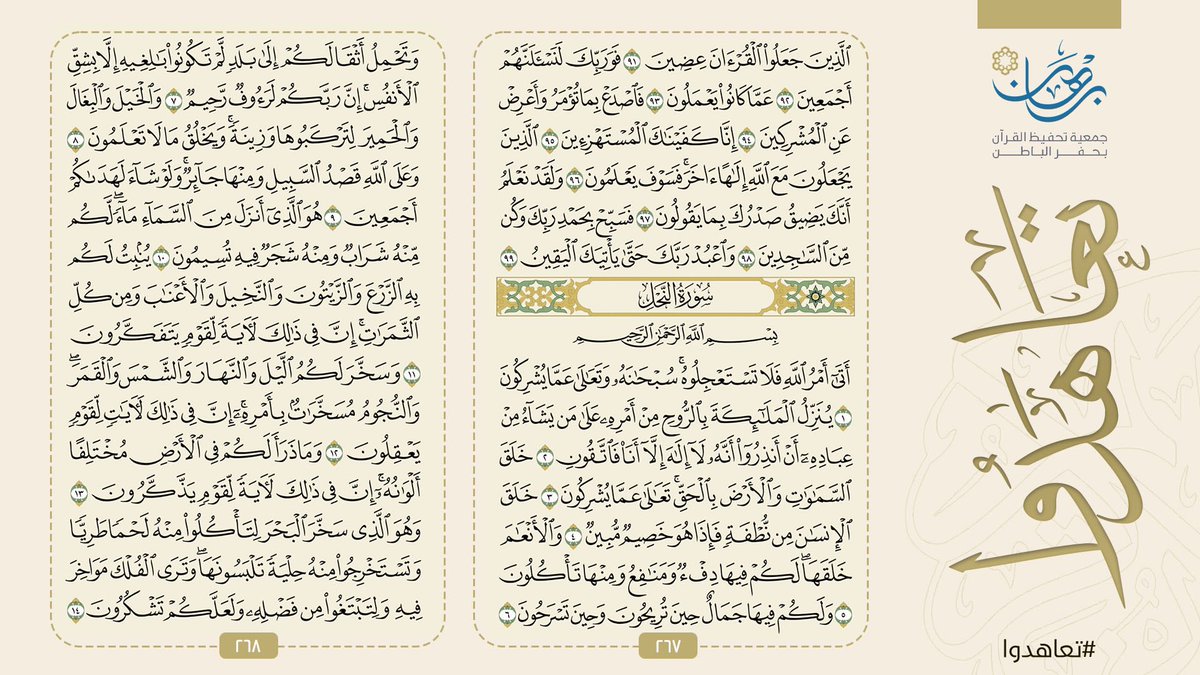 برهان
جمعية تحفيظ القرآن
بحفر الباطن
تعاهدوا
#تعاهدوا
ٱلَّذِينَ جَعَلُوا۟ ٱلْقُرْءَانَ عِضِينَ ٩١ فَوَرَبِّكَ لَنَسْـَٔلَنَّهُمْ
أَجْمَعِينَ ٩٢ عَمَّا كَانُوا۟ يَعْمَلُونَ ٩٣ فَٱصْدَعْ بِمَا تُؤْمَرُ وَأَعْرِضْ
عَنِ ٱلْمُشْرِكِينَ ٩٤ إِنَّا كَفَيْنَٰكَ ٱلْمُسْتَهْزِءِينَ ٩٥ ٱلَّذِينَ
يَجْعَلُونَ مَعَ ٱللَّهِ إِلَٰهًا ءَاخَرَ فَسَوْفَ يَعْلَمُونَ ٩٦ وَلَقَدْ نَعْلَمُ
أَنَّكَ يَضِيقُ صَدْرُكَ بِمَا يَقُولُونَ ٩٧ فَسَبِّحْ بِحَمْدِ رَبِّكَ وَكُن
مِّنَ ٱلسَّٰجِدِينَ ٩٨ وَٱعْبُدْ رَبَّكَ حَتَّىٰ يَأْتِيَكَ ٱلْيَقِينُ ٩٩
سُورَةُ النَّحْلِ
بِسْمِ ٱللَّهِ ٱلرَّحْمَٰنِ ٱلرَّحِيمِ
أَتَىٰٓ أَمْرُ ٱللَّهِ فَلَا تَسْتَعْجِلُوهُ ۚ سُبْحَٰنَهُۥ وَتَعَٰلَىٰ عَمَّا يُشْرِكُونَ
١ يُنَزِّلُ ٱلْمَلَٰٓئِكَةَ بِٱلرُّوحِ مِنْ أَمْرِهِۦ عَلَىٰ مَن يَشَآءُ مِنْ
عِبَادِهِۦٓ أَنْ أَنذِرُوٓا۟ أَنَّهُۥ لَآ إِلَٰهَ إِلَّآ أَنَا۠ فَٱتَّقُونِ ٢ خَلَقَ
ٱلسَّمَٰوَٰتِ وَٱلْأَرْضَ بِٱلْحَقِّ ۚ تَعَٰلَىٰ عَمَّا يُشْرِكُونَ ٣ خَلَقَ
ٱلْإِنسَٰنَ مِن نُّطْفَةٍ فَإِذَا هُوَ خَصِيمٌ مُّبِينٌ ٤ وَٱلْأَنْعَٰمَ
خَلَقَهَا ۗ لَكُمْ فِيهَا دِفْءٌ وَمَنَٰفِعُ وَمِنْهَا تَأْكُلُونَ
٥ وَلَكُمْ فِيهَا جَمَالٌ حِينَ تُرِيحُونَ وَحِينَ تَسْرَحُونَ ٦
٢٦٧
وَتَحْمِلُ أَثْقَالَكُمْ إِلَىٰ بَلَدٍ لَّمْ تَكُونُوا۟ بَٰلِغِيهِ إِلَّا بِشِقِّ
ٱلْأَنفُسِ ۚ إِنَّ رَبَّكُمْ لَرَءُوفٌ رَّحِيمٌ ٧ وَٱلْخَيْلَ وَٱلْبِغَالَ
وَٱلْحَمِيرَ لِتَرْكَبُوهَا وَزِينَةً ۚ وَيَخْلُقُ مَا لَا تَعْلَمُونَ ٨
وَعَلَى ٱللَّهِ قَصْدُ ٱلسَّبِيلِ وَمِنْهَا جَآئِرٌ ۚ وَلَوْ شَآءَ لَهَدَىٰكُمْ
أَجْمَعِينَ ٩ هُوَ ٱلَّذِىٓ أَنزَلَ مِنَ ٱلسَّمَآءِ مَآءً ۖ لَّكُم
مِّنْهُ شَرَابٌ وَمِنْهُ شَجَرٌ فِيهِ تُسِيمُونَ ١٠ يُنۢبِتُ لَكُم
بِهِ ٱلزَّرْعَ وَٱلزَّيْتُونَ وَٱلنَّخِيلَ وَٱلْأَعْنَٰبَ وَمِن كُلِّ
ٱلثَّمَرَٰتِ ۗ إِنَّ فِى ذَٰلِكَ لَءَايَةً لِّقَوْمٍ يَتَفَكَّرُونَ
١١ وَسَخَّرَ لَكُمُ ٱلَّيْلَ وَٱلنَّهَارَ وَٱلشَّمْسَ وَٱلْقَمَرَ ۖ
وَٱلنُّجُومُ مُسَخَّرَٰتٌۢ بِأَمْرِهِۦٓ ۗ إِنَّ فِى ذَٰلِكَ لَءَايَٰتٍ لِّقَوْمٍ
يَعْقِلُونَ ١٢ وَمَا ذَرَأَ لَكُمْ فِى ٱلْأَرْضِ مُخْتَلِفًا
أَلْوَٰنُهُۥٓ ۗ إِنَّ فِى ذَٰلِكَ لَءَايَةً لِّقَوْمٍ يَذَّكَّرُونَ ١٣
وَهُوَ ٱلَّذِى سَخَّرَ ٱلْبَحْرَ لِتَأْكُلُوا۟ مِنْهُ لَحْمًا طَرِيًّا
وَتَسْتَخْرِجُوا۟ مِنْهُ حِلْيَةً تَلْبَسُونَهَا ۖ وَتَرَى ٱلْفُلْكَ مَوَاخِرَ
فِيهِ وَلِتَبْتَغُوا۟ مِن فَضْلِهِۦ وَلَعَلَّكُمْ تَشْكُرُونَ ١٤
٢٦٨